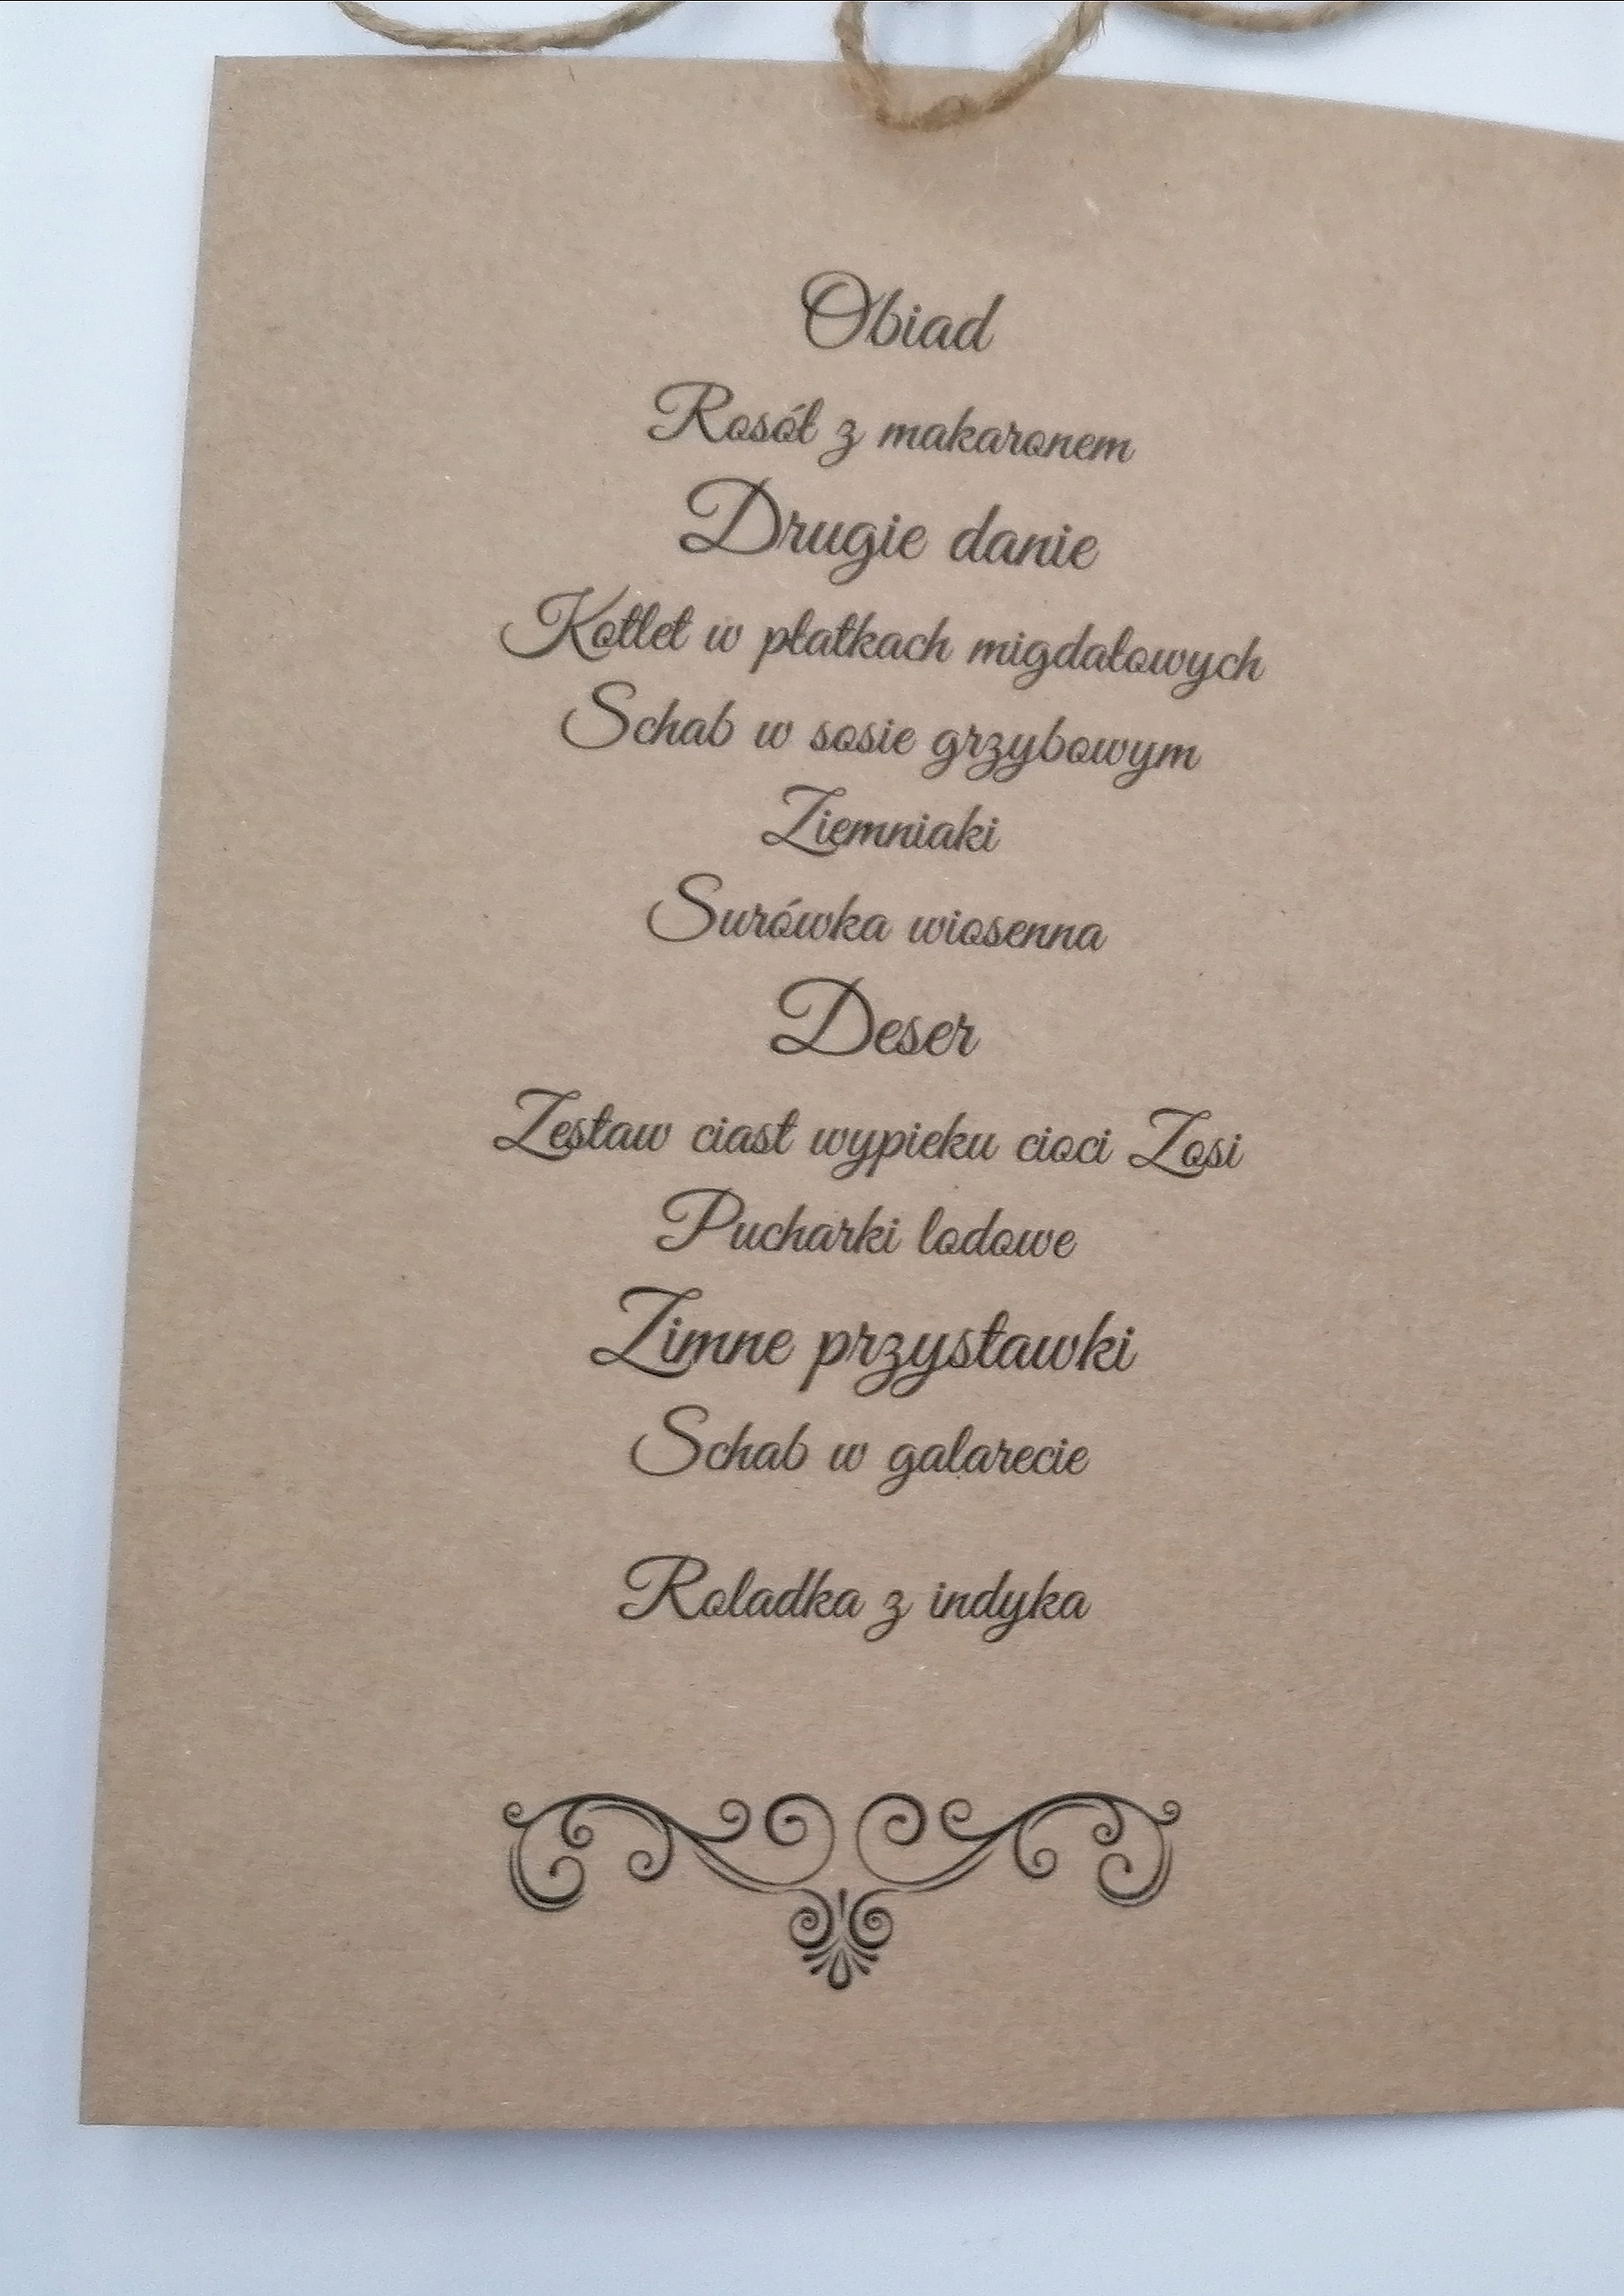 Obiad
Rosół z makaronem
Drugie danie
Kotlet w płatkach migdałowych
Schab w sosie grzybowym
Ziemniaki
Surówka wiosenna
Deser
Zestaw ciast wypieku cioci Zosi
Pucharki lodowe
Zimne przystawki
Schab w galarecie
Roladka z indyka